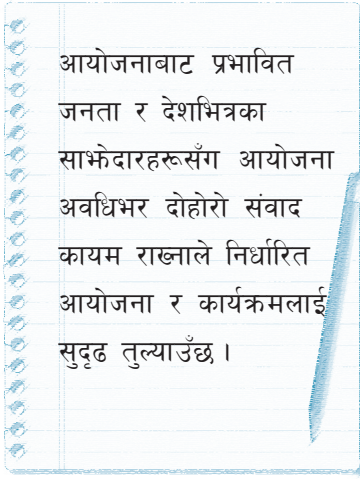 आयोजनाबाट प्रभावित
जनता र देशभित्रका
साझेदारहरूसँग आयोजना
अवधिभर दोहोरो संवाद
कायम राख्नाले निर्धारित
आयोजना र कार्यक्रमलाई
सुदृढ तुल्याउँछ ।